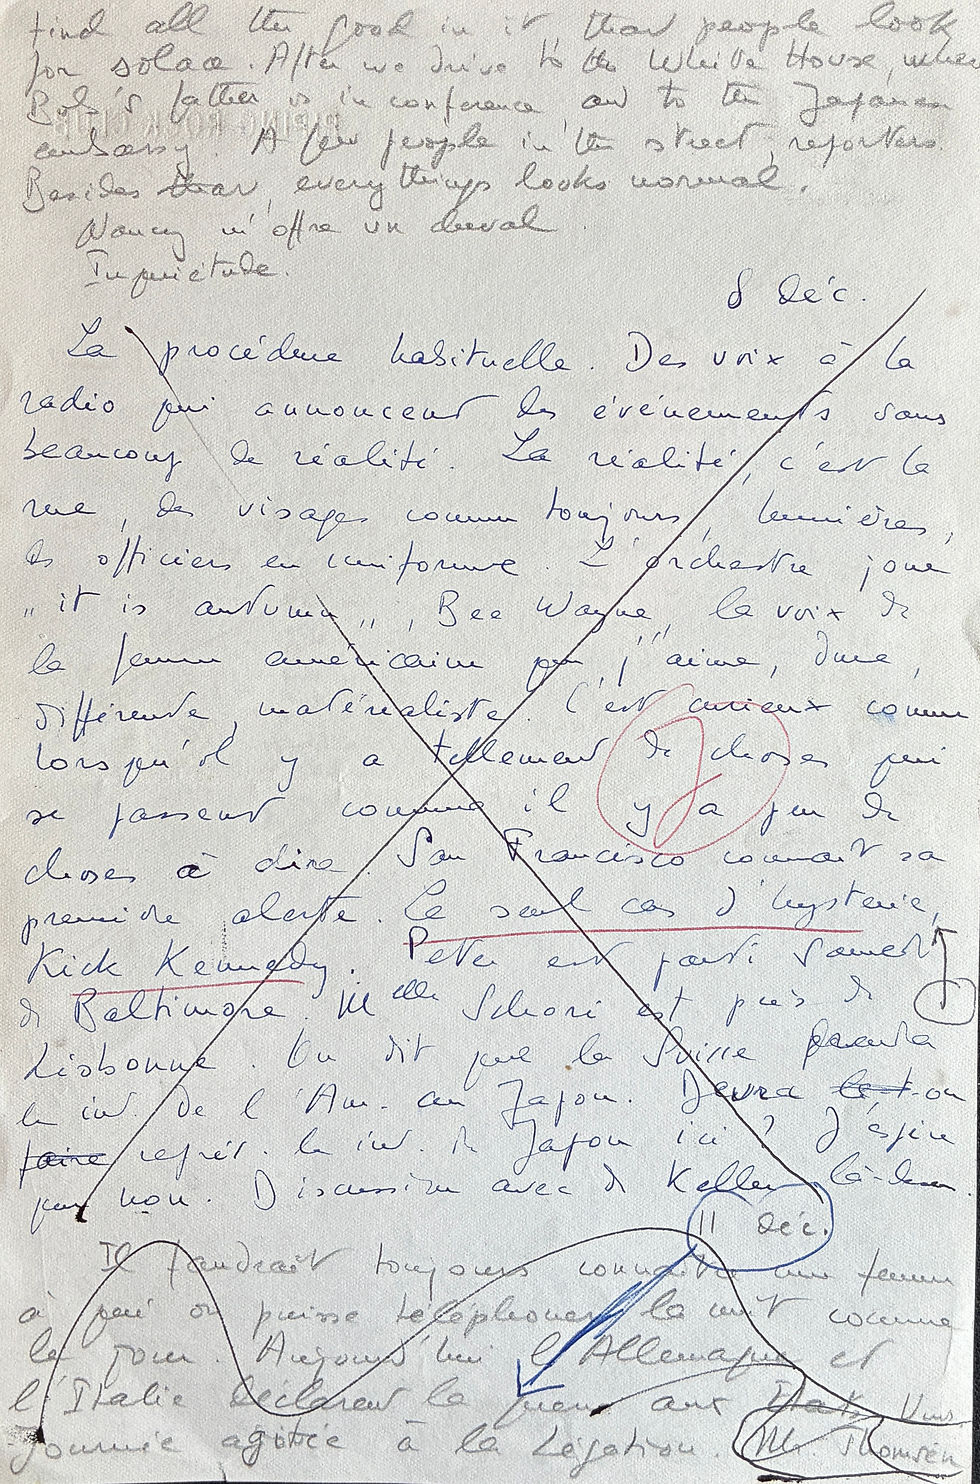 find all the good in it, that people look
for solace. After we drive to the White House, where
Bob's father is in conference and to the Japanese
embassy. A few people in the street, reporters.
Besides that, everythings looks normal.
Nancy m'offre un cheval.
Inquiétude.
8 déc.
La procédure habituelle. Des voix à la
radio qui annoncent des événements sans
beaucoup de réalité. La réalité, c'est la
rue, des visages comme toujours, lumières,
des officiers en uniforme. L'orchestre joue
„ it is autumn „, Bee Wayne, la voix de
la femme américaine que j'aime, dure,
différente, matérialiste. C'est curieux comme
lorsqu'il y a tellement de choses qui
se passent comme il y a peu de
choses à dire. San Francisco connait sa
première alerte. Le seul cas d'hysterie,
Kick Kennedy. Peter est parti samedi
de Baltimore. Melle Schori est près de
Lisbonne. On dit que la Suisse prendra
les int. de l'Am. au Japon. Devra-t-on
faire représ. les int. du Japon ici ? J'éspère
que non. Discussion avec de Keller là-dessus.
11 déc.
Il faudrait toujours connaître une femme
à qui on puisse téléphoner la nuit comme
le jour. Aujourd'hui l'Allemagne et
l'Italie declarent la guerre aux Etats Unis
Journée agitée à la Légation. Mr. Thomsen